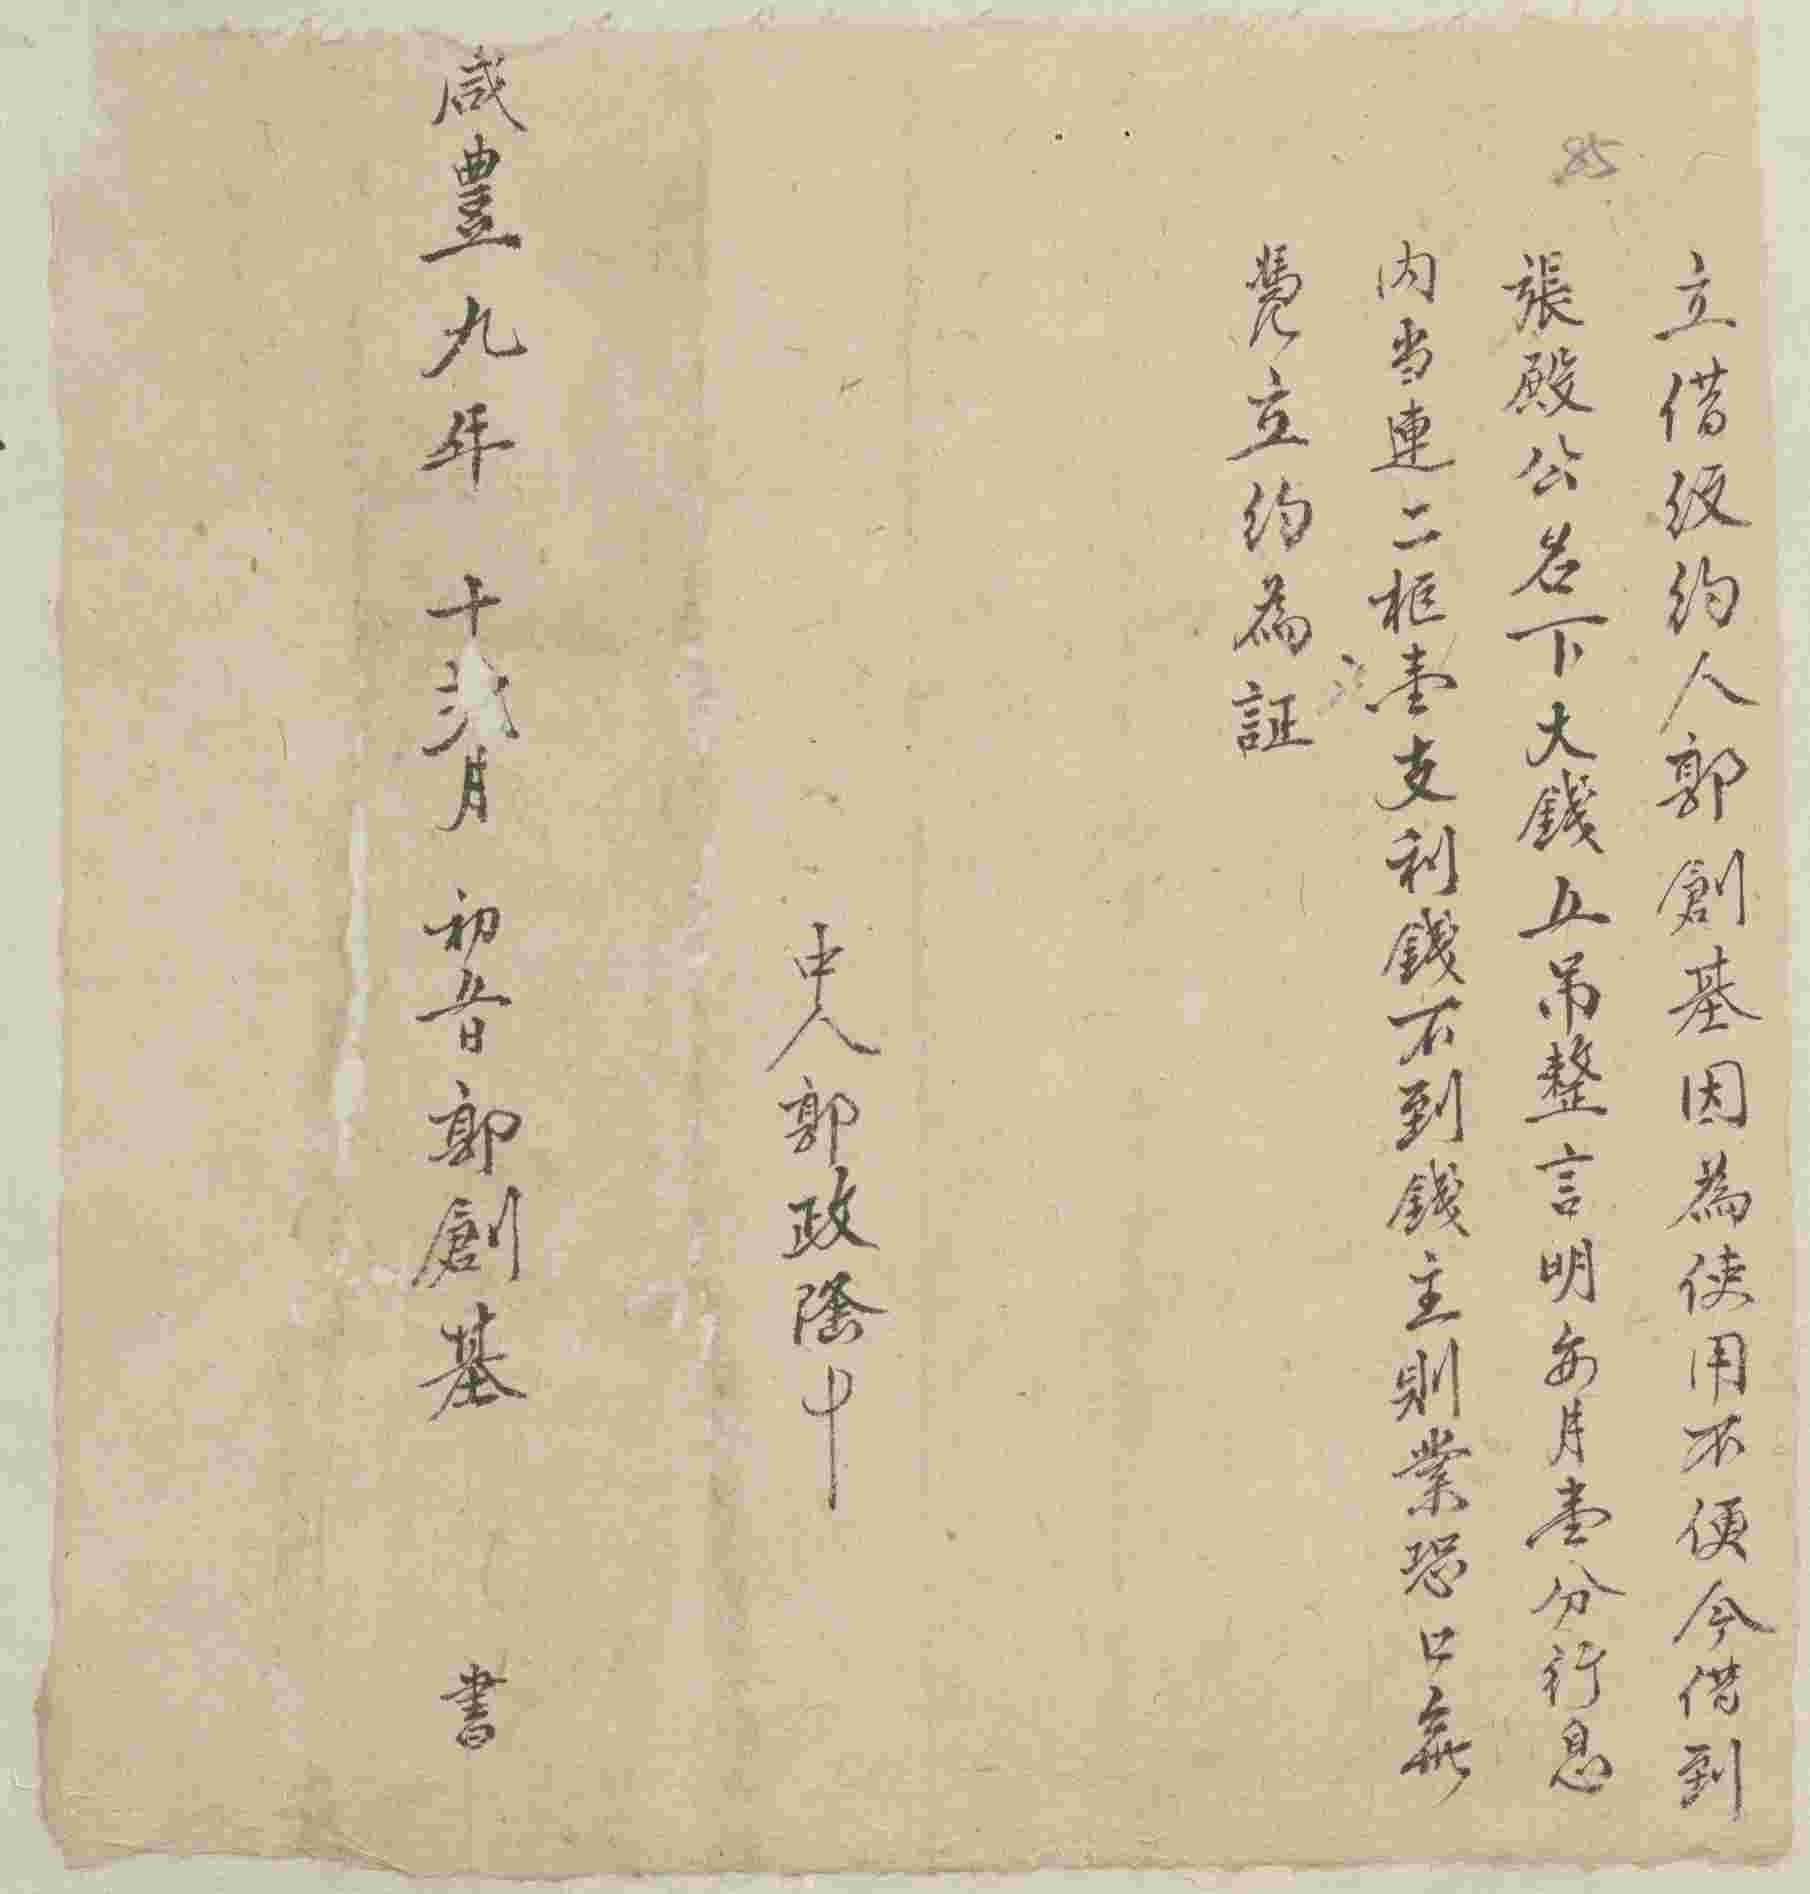 85
立借約人郭創基因為使用不便今借到
張殿公名下大錢五吊整言明每月壹分行息
內当連二柜壹支利錢不到錢主則業恐口無
憑立約為証
中人郭政隆十
咸豊九年 十弍月 初五日 郭創基 書